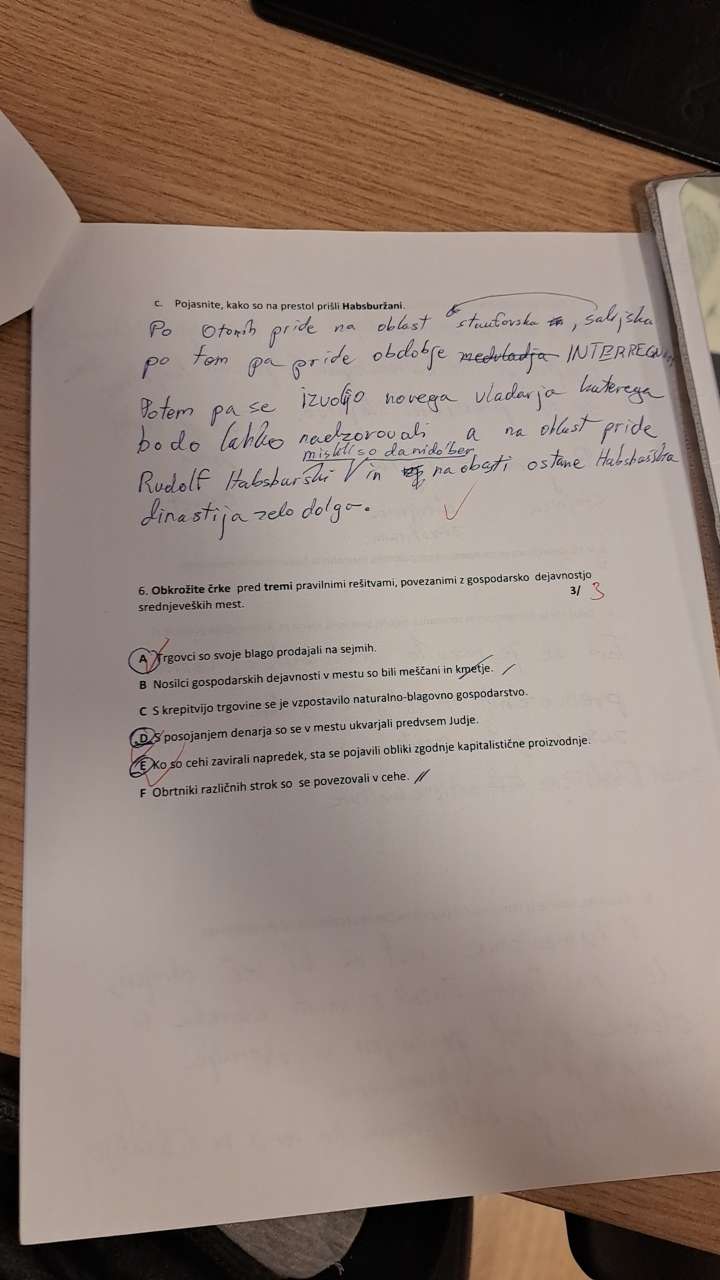 c. Pojasnite, kako so na prestol prišli Habsburžani.
Po Otonih pride na oblast štaufovska, salijska
po tem pa pride obdobje medvladja INTERREGNUM
Potem pa se izvoljo novega vladarja katerega
bodo lahko nadzorovali a na oblast pride
mislili so da ni dober
Rudolf Habsburški V in na obasti ostane Habsburška
dinastija zelo dolgo.
6. Obkrožite črke pred tremi pravilnimi rešitvami, povezanimi z gospodarsko dejavnostjo
3/ 3
srednjeveških mest.
A Trgovci so svoje blago prodajali na sejmih.
B Nosilci gospodarskih dejavnosti v mestu so bili meščani in kmetje.
C S krepitvijo trgovine se je vzpostavilo naturalno-blagovno gospodarstvo.
D S posojanjem denarja so se v mestu ukvarjali predvsem Judje.
E Ko so cehi zavirali napredek, sta se pojavili obliki zgodnje kapitalistične proizvodnje.
F Obrtniki različnih strok so se povezovali v cehe.